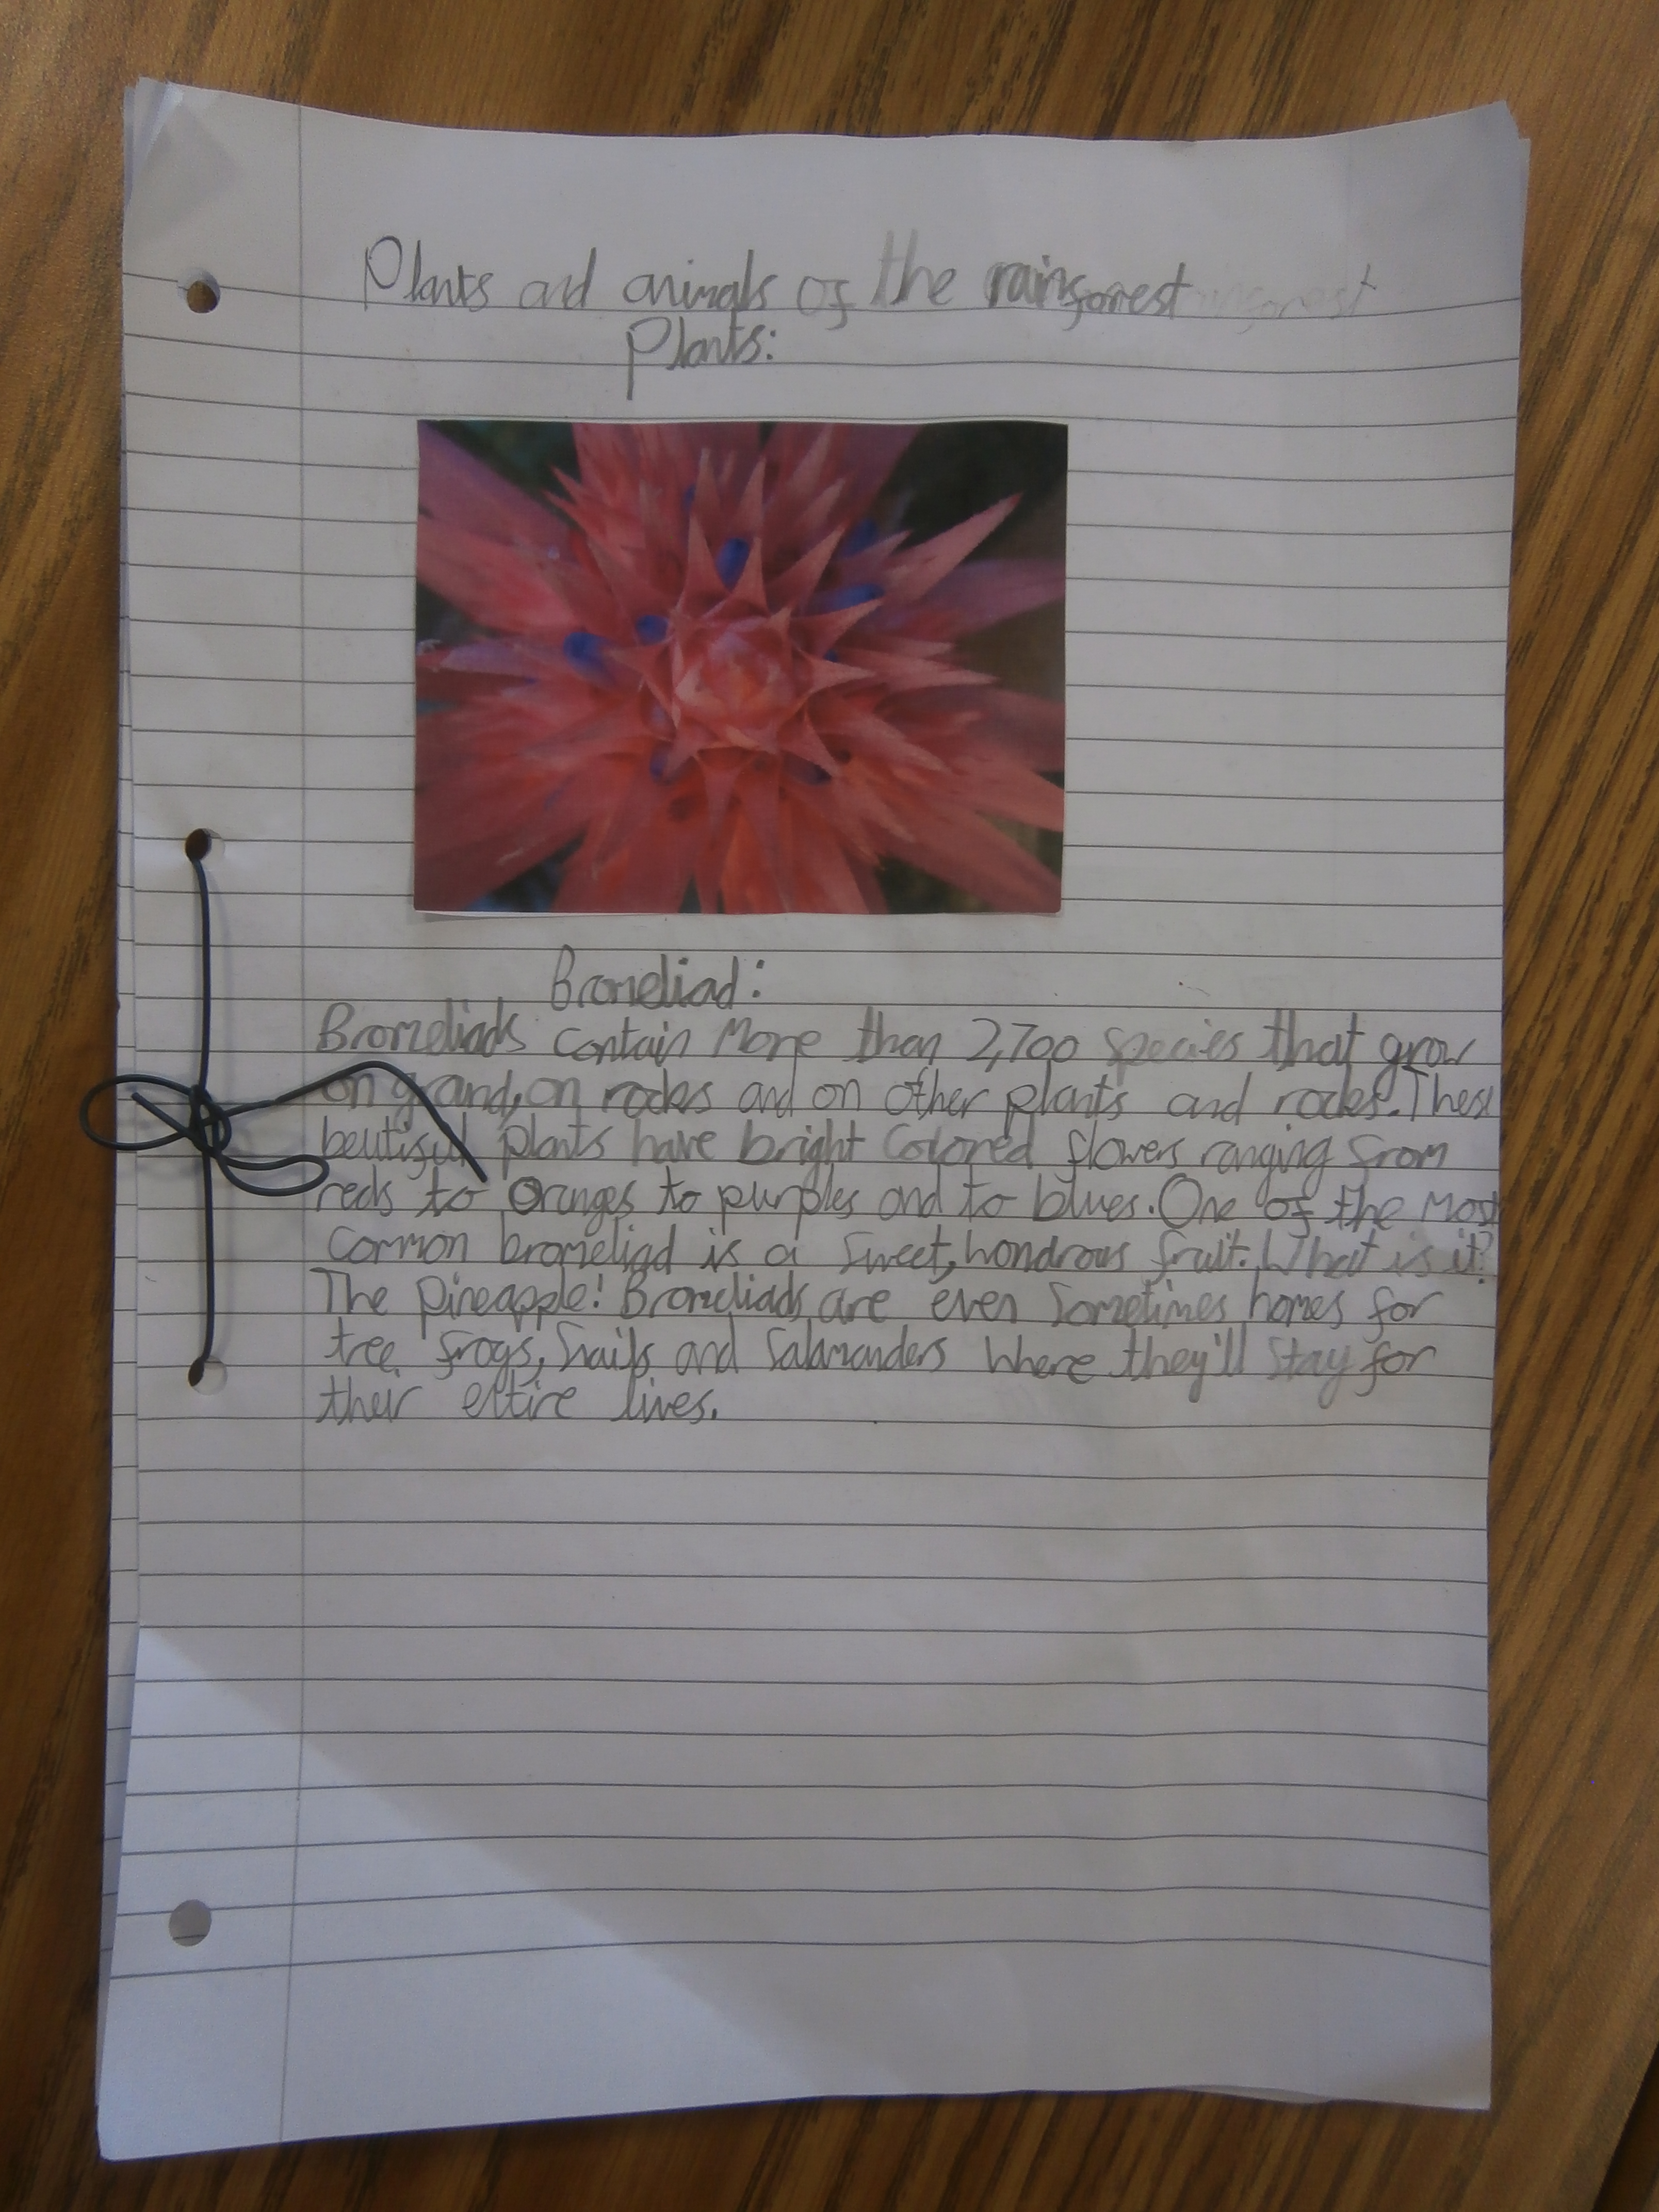 Plants and animals of the rainforest
Plants:
Bromeliad:
Bromeliads contain more than 2,700 species that grow
on grand, on rocks and on other plants and rocks. These
beutiful plants have bright colored flowers ranging from
reds to oranges to purples and to blues. One of the most
common bromeliad is a sweet, wondrous fruit. What is it?
The pineapple! Bromeliads are even sometimes homes for
tree frogs, snails and salamanders where they'll stay for
their entire lives.